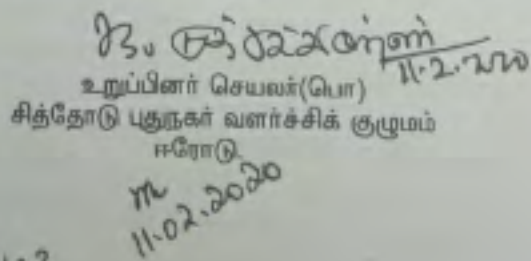 11.2.2020
உறுப்பினர் செயலர்(பொ)
சித்தோடு புதுநகர் வளர்ச்சிக் குழுமம்
ஈரோடு.
m
11.02.2020